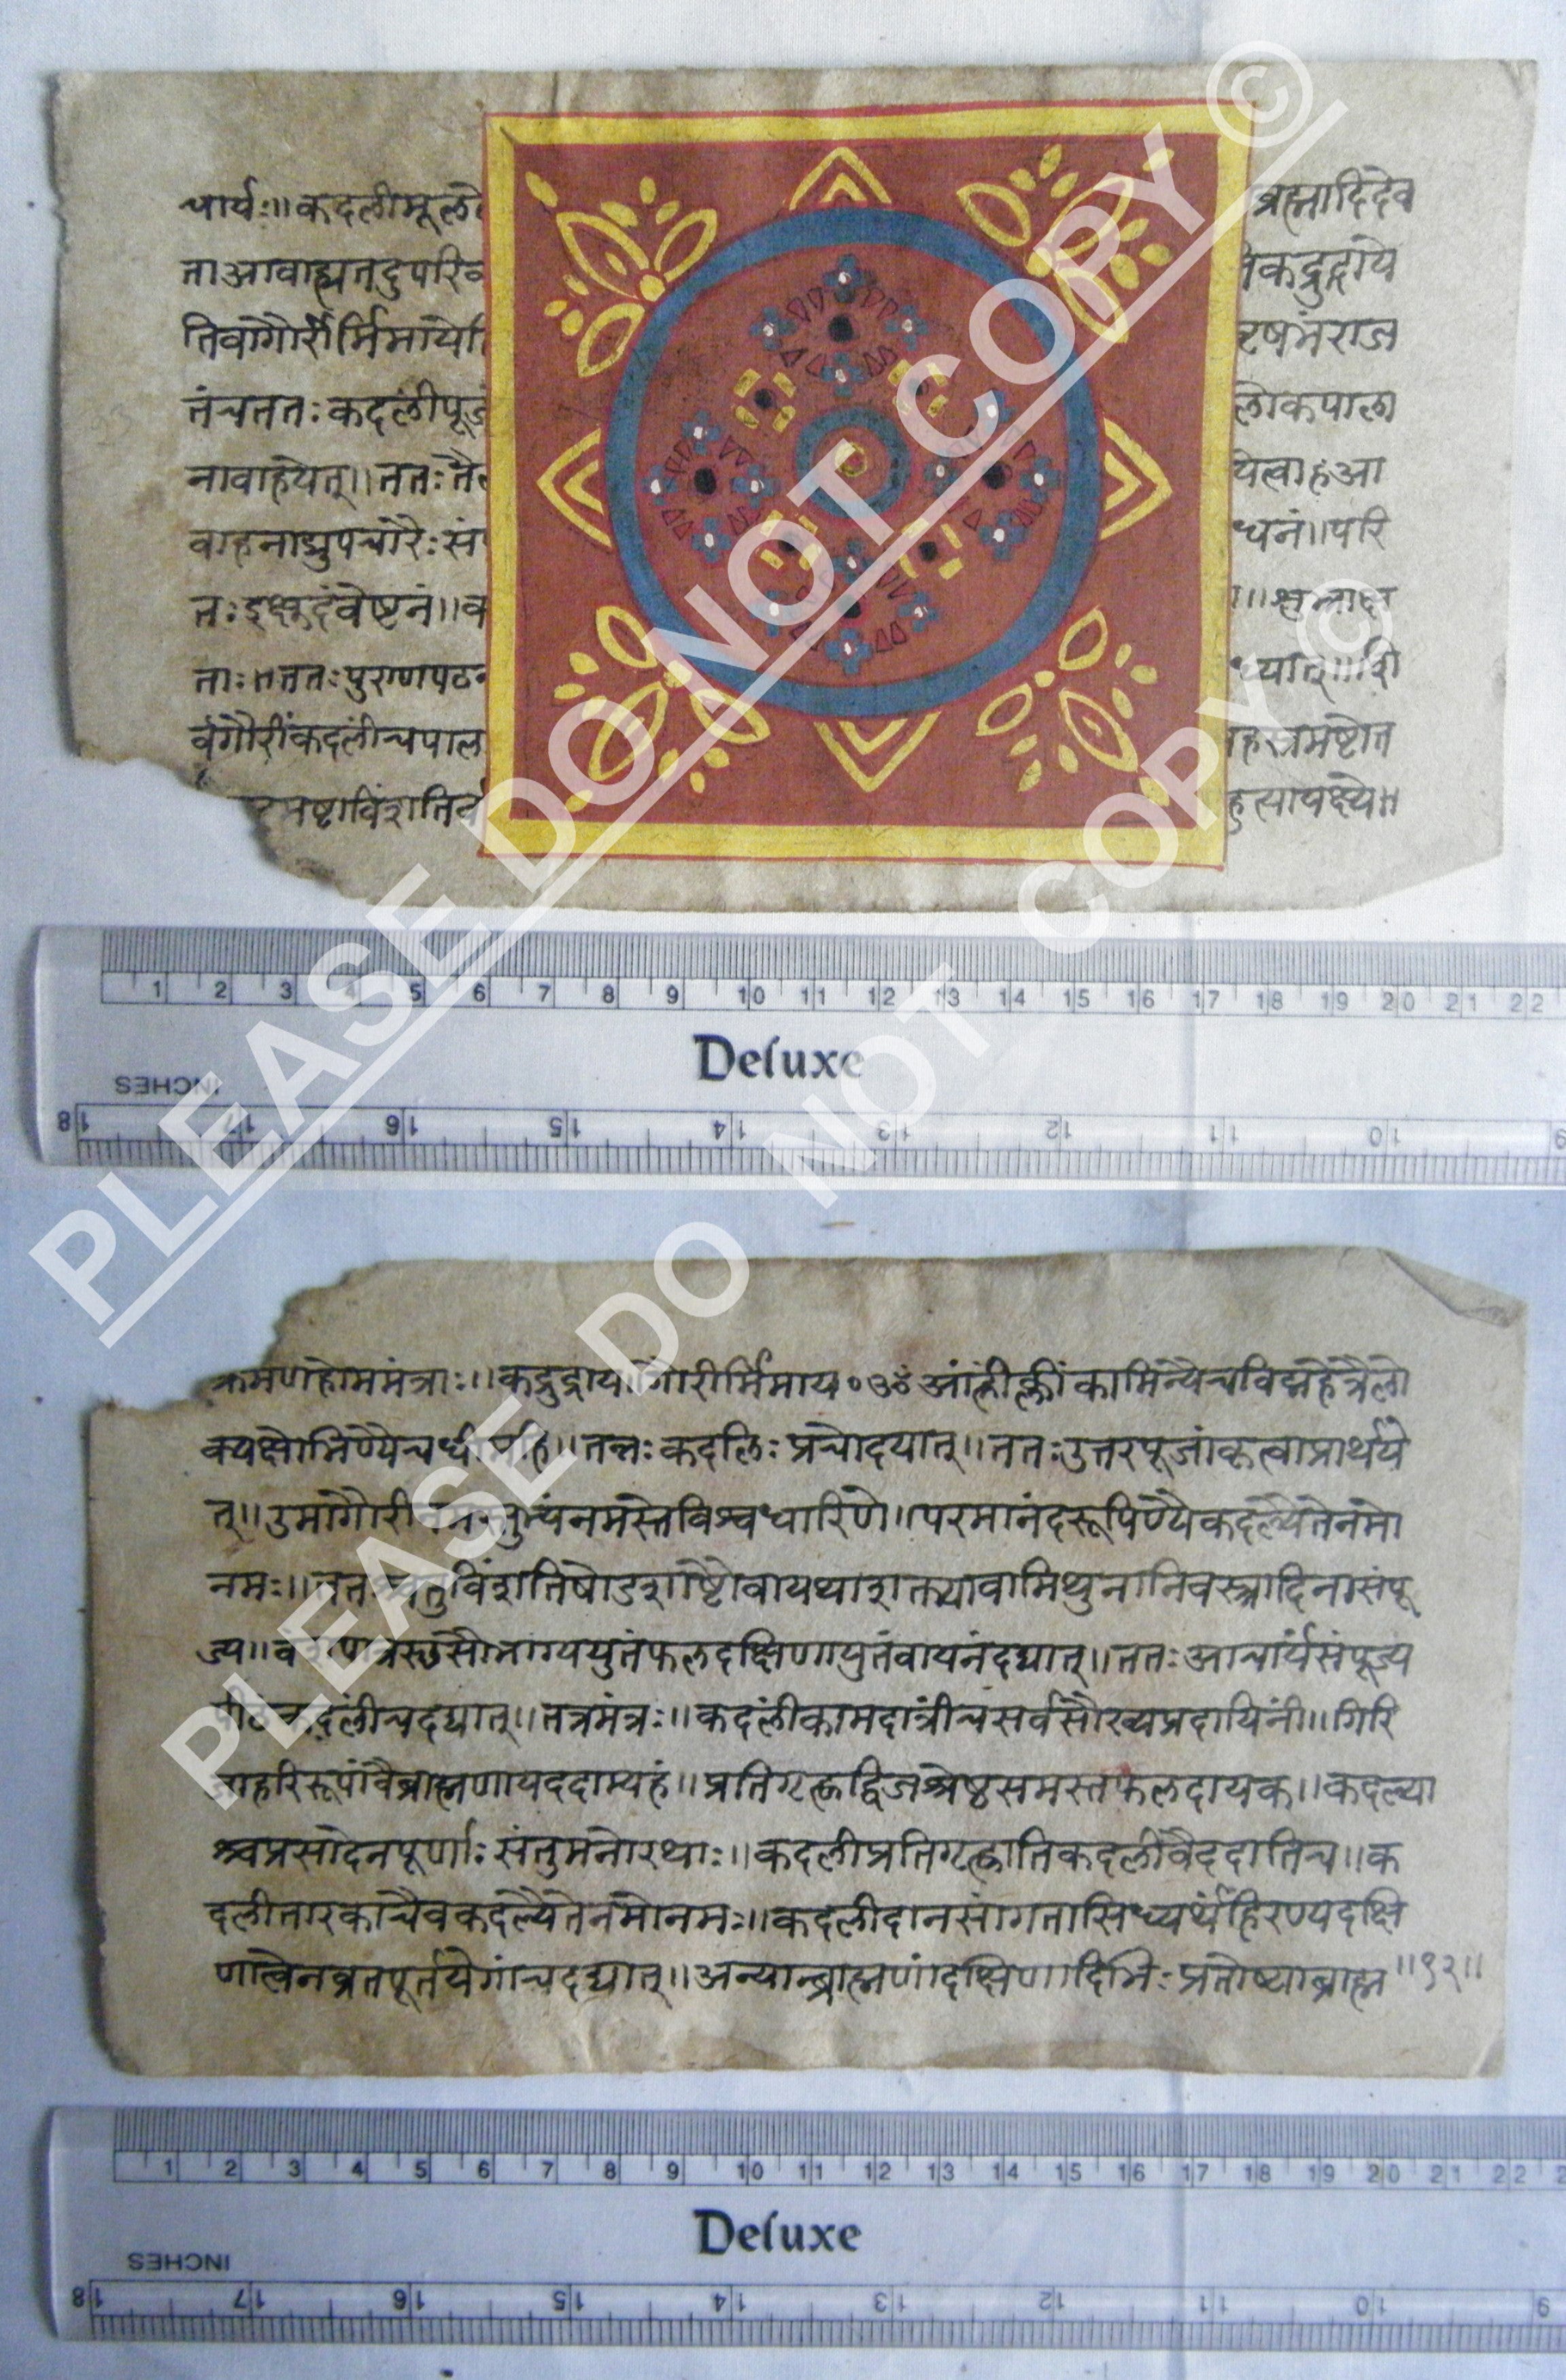 चार्यः॥कदलीमूले ब्रह्मादिदेव
ताआवाह्यतदुपरि कद्रुद्राये
तिवागौरीर्मिमाये राज
तंचततःकदलीं लोकपाला
नावाहयेत्॥ततः आ
वाहनाद्युपचारैः परि
तःइक्षुदंवेष्टनं॥
ताः॥ततःपुराणपठ
र्वगौरींकदलींचपाल हस्रमष्टोत
मष्टाविंशति
PLEASE DO NOT COPY ©
1 2 3 4 5 6 7 8 9 10 11 12 13 14 15 16 17 18 19 20 21 22
Deluxe
INCHES
18 17 16 15 14 13 12 11 10 9
क्रमेणहोममंत्राः॥कद्रुद्राय॥गौरीर्मिमाय०ॐआंह्रींक्लींकामिन्यैचविद्महेत्रैलो
क्यक्षोभिण्यैचधीमहि॥तन्नःकदलिःप्रचोदयात्॥ततःउत्तरपूजांकृत्वाप्रार्थये
त्॥उमागौरीनमस्तुभ्यंनमस्तेविश्वधारिणे॥परमानंदरूपिण्यैकदल्यैतेनमो
नमः॥ततश्चतुर्विंशतिषोडशाष्टौवायथाशक्त्यावामिथुनानिवस्त्रादिनासंपू
ज्य॥ सौभाग्ययुतंफलदक्षिणायुतंवायनंदद्यात्॥ततःआचार्यंसंपूज्य
पीठंकदलींचदद्यात्॥तत्रमंत्रः॥कदलींकामदात्रींचसर्वसौख्यप्रदायिनीं॥गिरि
जाहरिरूपांवैब्राह्मणायददाम्यहं॥प्रतिगृह्णद्विजश्रेष्ठसमस्तफलदायक॥कदल्या
श्चप्रसादेनपूर्णाःसंतुमनोरथाः॥कदलीप्रतिगृह्णातिकदलीवैददातिच॥क
दलीतारकाचैवकदल्यैतेनमोनमः॥कदलीदानसांगतासिध्यर्थंहिरण्यदक्षि
णात्वेनव्रतपूर्तयेगांचदद्यात्॥अन्यान्ब्राह्मणांदक्षिणादिभिःप्रतोष्याब्राह्म ॥१२॥
PLEASE DO NOT COPY ©
1 2 3 4 5 6 7 8 9 10 11 12 13 14 15 16 17 18 19 20 21 22
Deluxe
INCHES
18 17 16 15 14 13 12 11 10 9